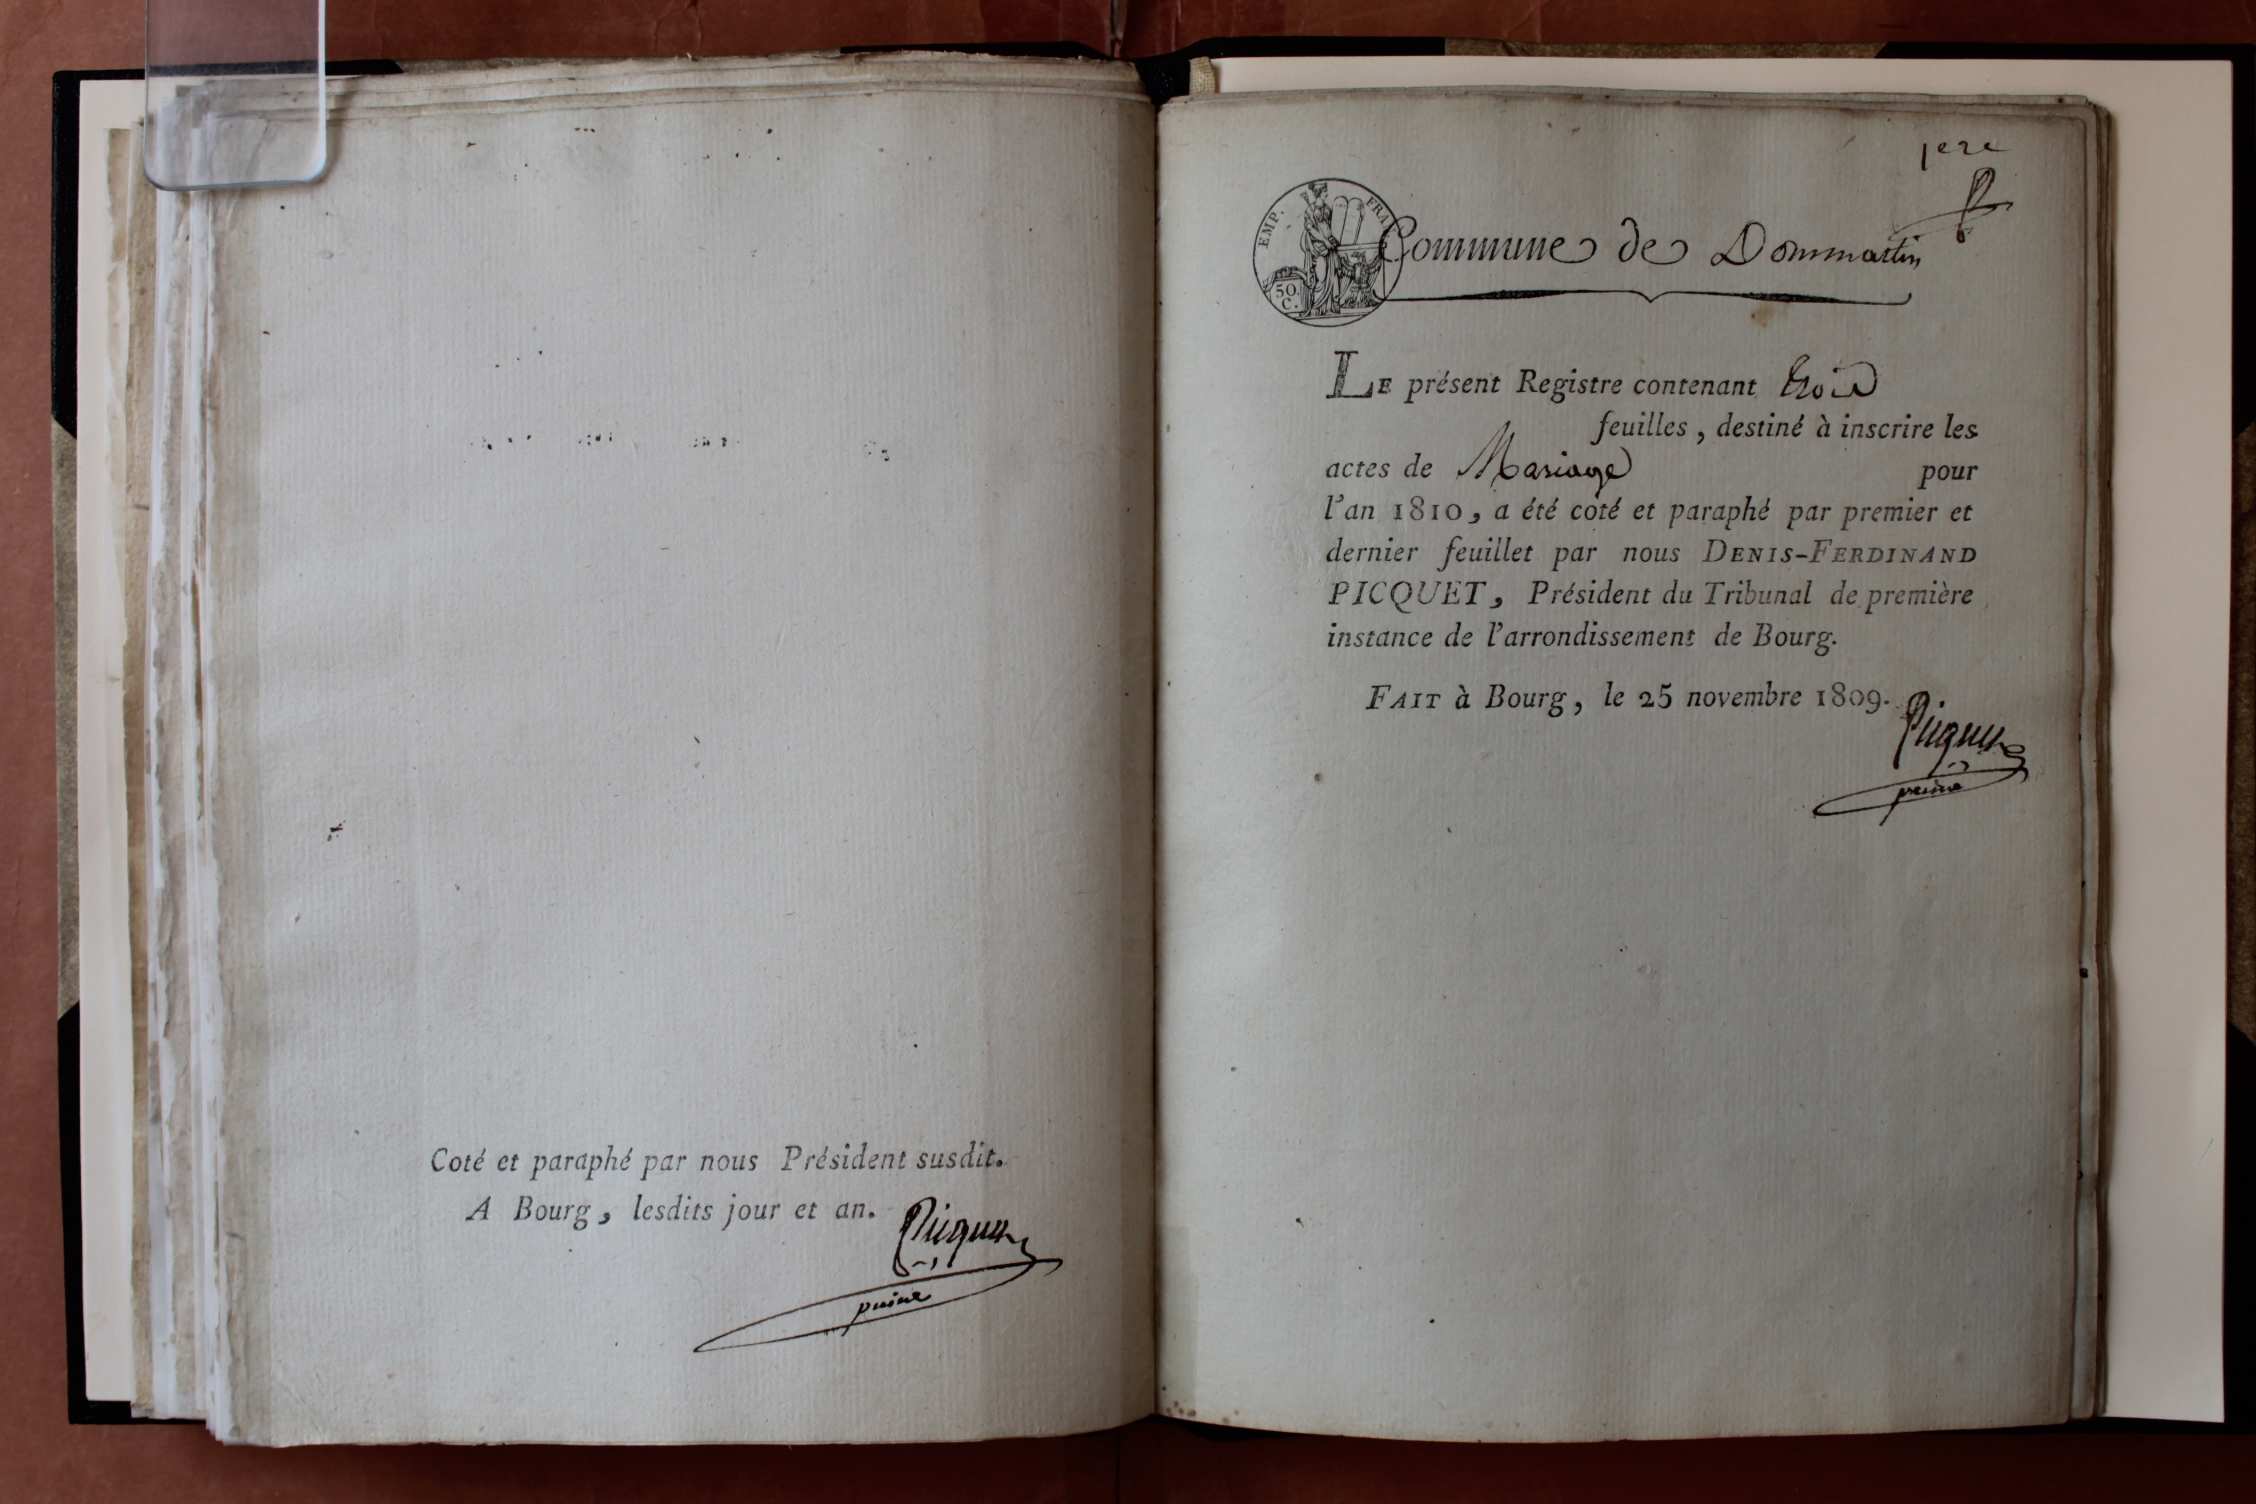 Coté et paraphé par nous Président susdit.
A Bourg, lesdits jour et an.
Picquet
1ere
EMP. FRA
50.
C.
Commune de Dommartin
LE présent Registre contenant trois
feuilles, destiné à inscrire les
actes de Mariage pour
l'an 1810, a été coté et paraphé par premier et
dernier feuillet par nous DENIS-FERDINAND
PICQUET, Président du Tribunal de première
instance de l'arrondissement de Bourg.
FAIT à Bourg, le 25 novembre 1809.
Picquet